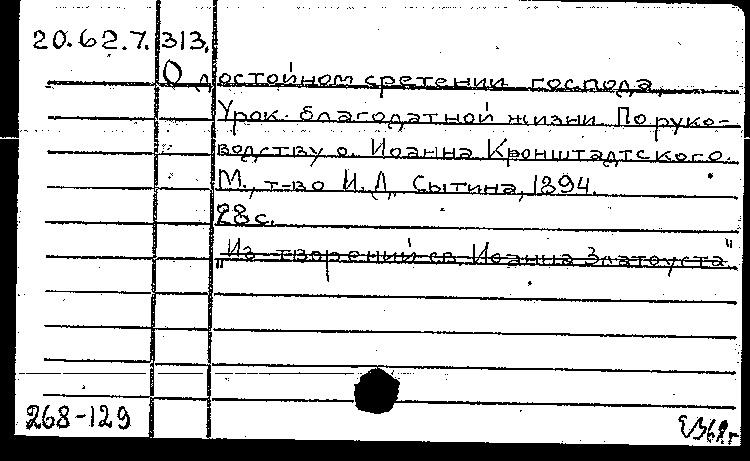 20.62.7. 313.
О достойном сретении господа.
Урок благодатной жизни. По руко-
водству о. Иоанна Кронштадтского.
М., т-во И. Д. Сытина, 1894.
28 с.
"Из творений св. Иоанна Златоуста"
268-129